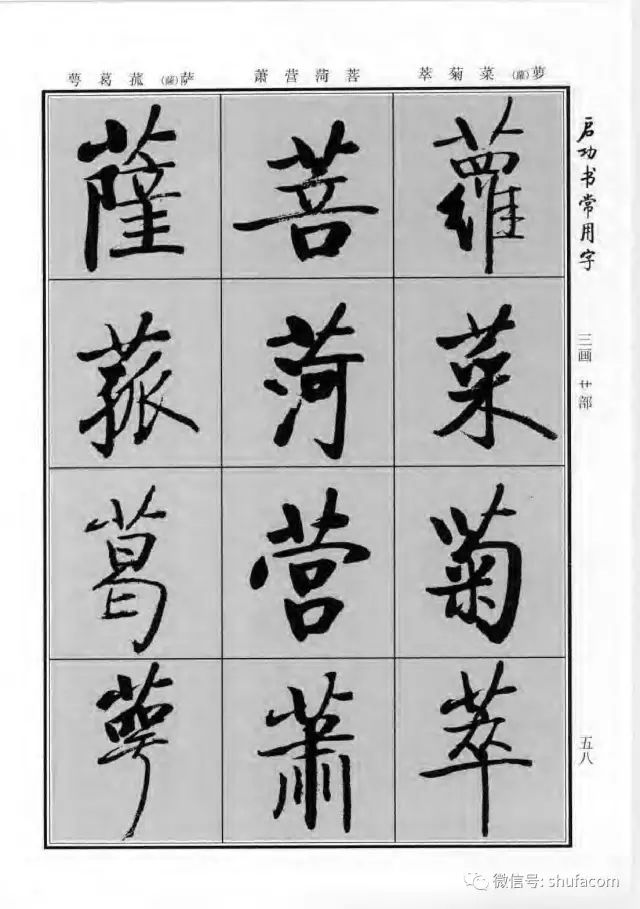 启功书常用字
三画 艹部
五八
萝(蘿)菜菊萃
菩菏营萧
萨(薩)菰葛萼
蘿菜菊萃
菩菏营萧
薩菰葛萼
微信号: shufacom